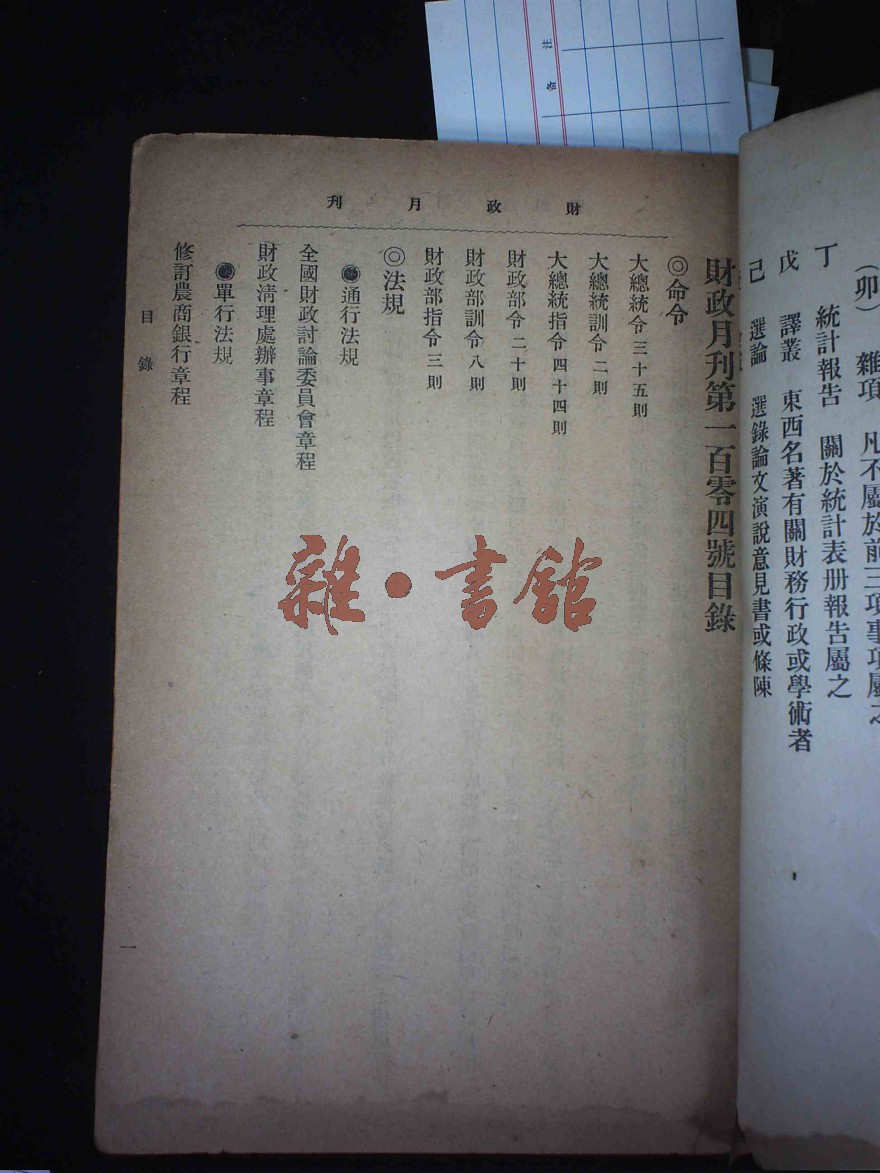 （卯）　雜項　凡不屬於前三項事項屬之
丁　統計報告　關於統計表册報告屬之
戊　譯叢　東西名著有關財務行政或學術者
己　選論　選錄論文演說意見書或條陳
財政月刊
財政月刊第一百零四號目錄
◎命令
大總統令三十五則
大總統訓令二則
大總統指令四十四則
財政部令二十則
財政部訓令八則
財政部指令三則
◎法規
●通行法規
全國財政討論委員會章程
財政淸理處辦事章程
●單行法規
修訂農商銀行章程
目錄
一
雜·書館